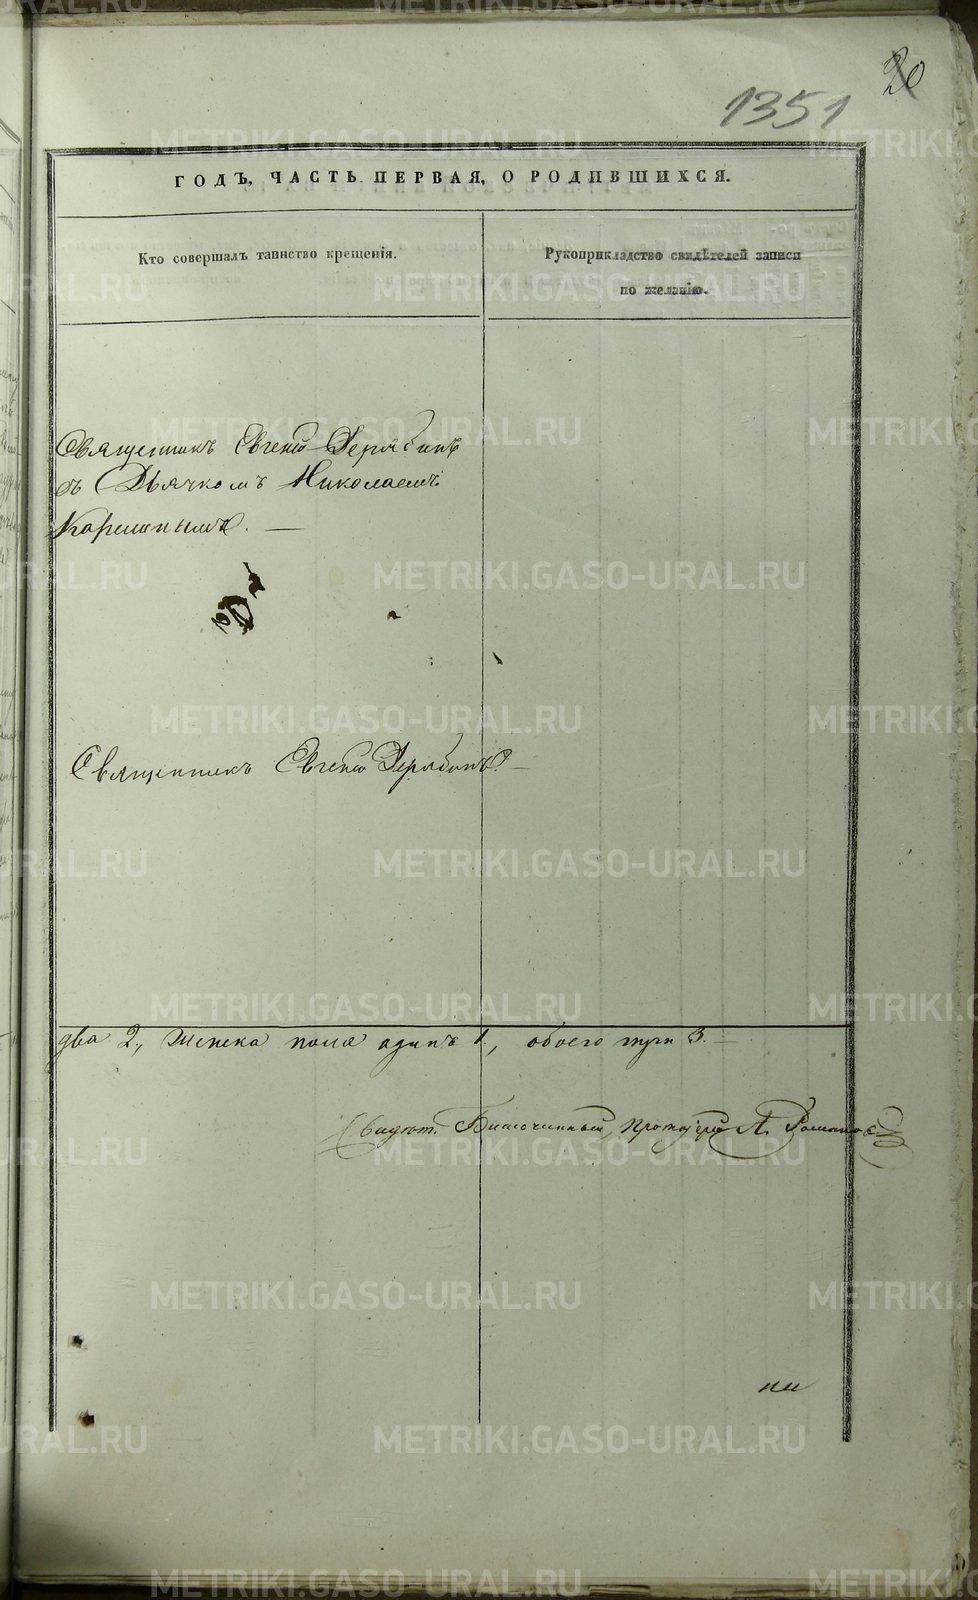 20
1351
ГОДЪ, ЧАСТЬ ПЕРВАЯ, О РОДИВШИХСЯ.
Кто совершалъ таинство крещенія.
Рукоприкладство свидѣтелей записи
по желанію.
Священникъ Евгеній Дерябинъ
съ Дьячкомъ Николаемъ
Священникъ Евгеній Дерябинъ. —
два 2, женска пола одинъ 1, обоего 3. —
Благочинный, Протоіерей А. Романовъ
METRIKI.GASO-URAL.RU